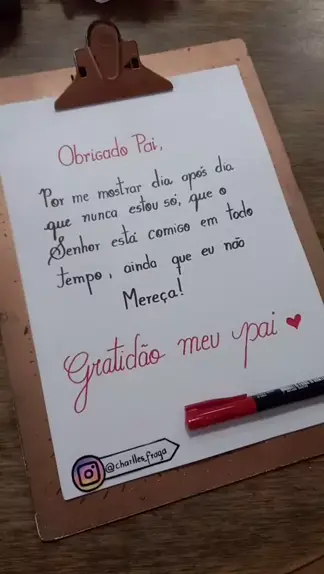 Obrigado Pai,
Por me mostrar dia após dia
que nunca estou só, que o
Senhor está comigo em todo
tempo, ainda que eu não
Mereça!
Gratidão meu pai
@charlles_fraga